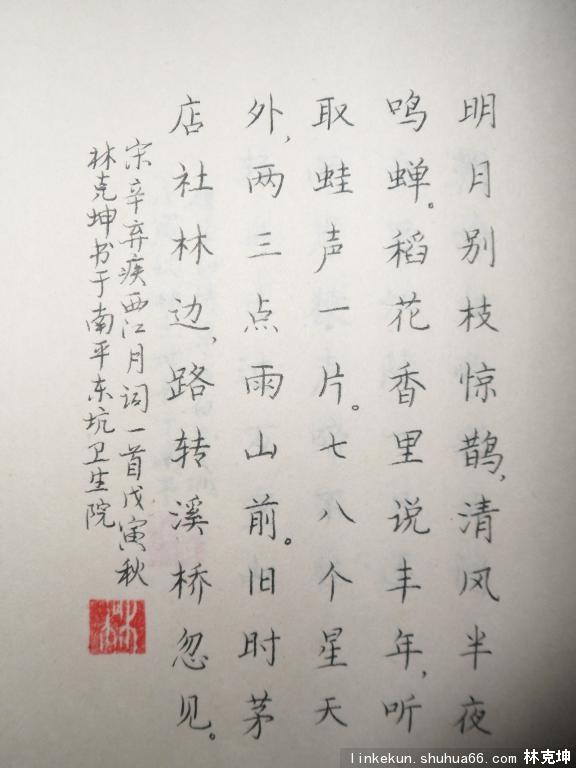 明月别枝惊鹊,清风半夜
鸣蝉。稻花香里说丰年,听
取蛙声一片。七八个星天
外,两三点雨山前。旧时茅
店社林边,路转溪桥忽见。
宋辛弃疾西江月词一首戊寅秋
林克坤书于南平东坑卫生院
林
linkekun.shuhua66.com 林克坤